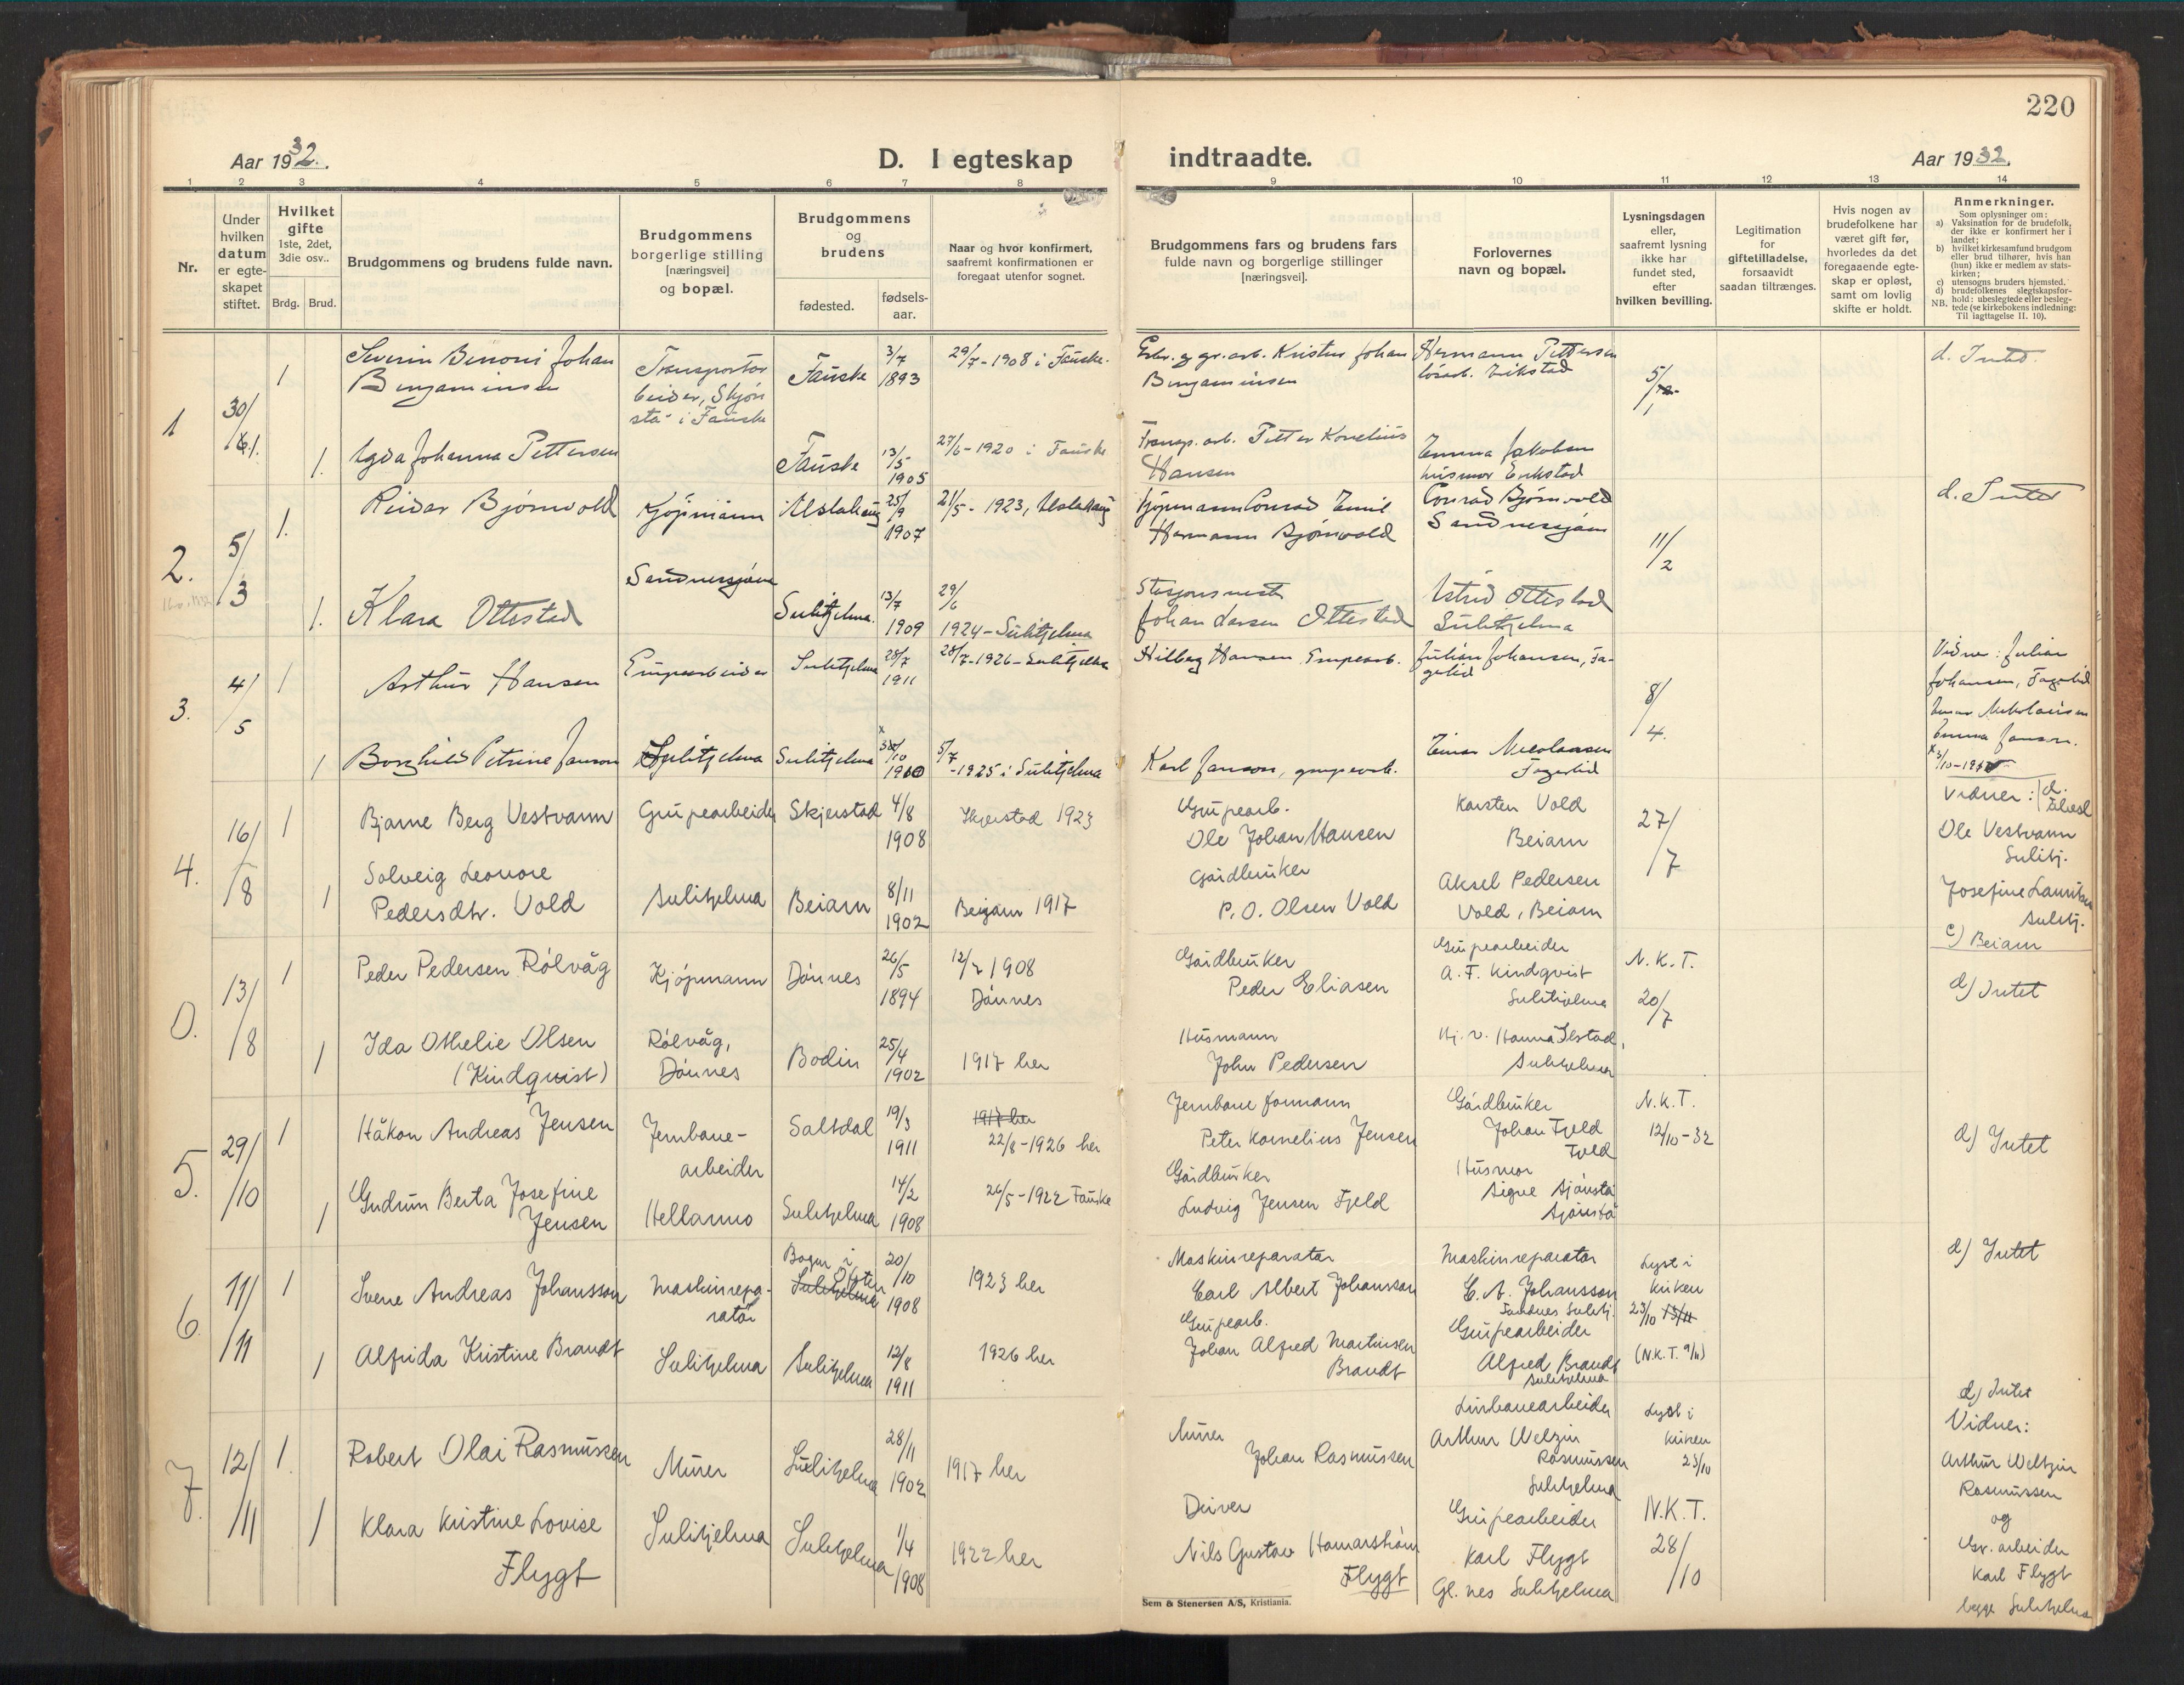 220
Aar 1932.
D. I egteskap indtraadte.
Aar 1932.
1 2 3 4 5 6 7 8 9 10 11 12 13 14
Nr.
Under hvilken datum er egteskapet stiftet.
Hvilket gifte 1ste, 2det, 3die osv..
Brdg. Brud.
Brudgommens og brudens fulde navn.
Brudgommens borgerlige stilling [næringsvei] og bopæl.
Brudgommens og brudens
fødested.
fødsels-aar.
Naar og hvor konfirmert, saafremt konfirmationen er foregaat utenfor sognet.
Brudgommens fars og brudens fars fulde navn og borgerlige stillinger [næringsvei].
Forlovernes navn og bopæl.
Lysningsdagen eller, saafremt lysning ikke har fundet sted, efter hvilken bevilling.
Legitimation for giftetilladelse, forsaavidt saadan tiltrænges.
Hvis nogen av brudefolkene har været gift før, hvorledes da det foregaaende egteskap er opløst, samt om lovlig skifte er holdt.
Anmerkninger.
Som oplysninger om:
a) Vaksination for de brudefolk, der ikke er konfirmert her i landet;
b) hvilket kirkesamfund brudgom eller brud tilhører, hvis han (hun) ikke er medlem av statskirken;
c) utensogns bruders hjemsted.
d) brudefolkenes slegtskapsforhold: ubeslegtede eller beslegtede (se kirkebokens indledning:
NB. Til iagttagelse II. 10).
1
30/
1
Severin Benoni Johan
Benjaminsen
Transportar
beider, Skjøn
stå i Fauske
Fauske
3/7
1893
29/7-1908 i Fauske.
Johan
Benjaminsen
Hermann Pettersen
5/
d. Intet.
1.
Agda Johanna Pettersen
Fauske
13/5
1905
27/6-1920 i Fauske
Transp. arb. Petter Kornelius
Hansen
Emma Jakobsen
husmor Erikstad
2.
5/3
1.
Reidar Bjørnvold
Kjøpmann
Sandnessjøen
Alstahaug
25/9
1907
21/5-1923, Alstahaug
Kjøpmann Conrad Emil
Hermann Bjørnvold
Conrad Bjørnvold
Sandnessjøen
11/2
d. Intet
1.
Klara Ottestad
Sulitjelma.
13/7
1909
29/6
1924-Sulitjelma
Johan Larsen Ottestad
Astrid Ottestad
Sulitjelma
3.
4/5
1
Arthur Hansen
Grupearbeider
Sulitjelma
28/7
1911
28/7-1926-Sulitjelma
Hilberg Hansen, Grupearb.
Julian Johansen, Fa-
gerlid
8/4.
Vidner: Julian
Johansen, Fagerlid
Einar Nikolaisen
Emma Janson.
1
Borghild Petrine Janson
Sulitjelma
Sulitjelma
5/7
-1925 i Sulitjelma
Karl Janson, grupearb.
Einar Nicolaisen
Fagerlid
4.
16/8
1
Bjarne Berg Vestvann
Grupearbeider
Skjerstad
4/8
1908
Skjerstad 1923
Grupearb.
Ole Johan Hansen
Karsten Vold
Beiarn
27/7
Vidner:
Ole Vestvann
Sulitj.
1
Solveig Leonore
Pedersdtr. Vold
Sulitjelma
Beiarn
8/11
1902
Beiarn 1917
Gårdbruker
P. O. Olsen Vold
Aksel Pedersen
Vold, Beiarn
Sulitj.
c) Beiarn
0.
13/8
1
Peder Pedersen Rølvåg
Kjøpmann
Dønnes
26/5
1894
12/7 1908
Dønnes
Gårdbruker
Peder Eliasen
Grupearbeider
A. F. Kindqvist
Sulitjelma
N.K.T.
20/7
d) Intet
1
Ida Othelie Olsen
(Kindquist)
Rølvåg,
Dønnes
Bodin
25/4
1902
1917 her
Husmann
John Pedersen
Sulitjelma
5.
29/10
1
Håkon Andreas Jensen
Jernbane-
arbeider
Saltdal
19/3
1911
1917 her
22/8-1926 her
Jernbane formann
Peter Kornelius Jensen
Gårdbruker
Johan Fjeld
Fjeld
N.K.T.
12/10-32
d) Intet
1
Gudrun Berta Josefine
Jensen
Hellarmo
Sulitjelma
14/2
1908
26/5-1922 Fauske
Gårdbruker
Ludvig Jensen Fjeld
Husmor
Signe Sjønstå
Sjønstå
6.
11/11
1
Sverre Andreas Johansson
Maskinrepa-
ratør
Sulitjelma
20/10
1908
1923 her
Maskinreparatør
Carl Albert Johansson
Maskinreparatør
C. A. Johansson
Sandnes Sulitj.
Lyst i
kirken
23/10 13/11
d) Intet
1
Alfrida Kristine Brandt
Sulitjelma
Sulitjelma
12/8
1911
1926 her
Grupearb.
Johan Alfred Martinsen
Brandt
Grupearbeider
Alfred Brandt
Sulitjelma
(N.K.T. 9/11)
7.
12/11
1
Robert Olai Rasmussen
Murer
Sulitjelma
28/11
1902
1917 her
Murer
Johan Rasmussen
Linbanearbeider
Arthur Welzin
Rasmussen
Sulitjelma
Lyst i
kirken
23/10
d) Intet
Vidner:
Arthur Weltzin
Rasmussen
og
Gr. arbeider
Karl Flygt
begge Sulitjelma
1
Klara Kristine Lovise
Flygt
Sulitjelma
Sulitjelma
1/4
1908
1922 her
Driver
Nils Gustav Hamarstrøm
Flygt
Grupearbeider
Karl Flygt
Gl. nes Sulitjelma
N.K.T.
28/10
Sem & Stenersen A/S, Kristiania.